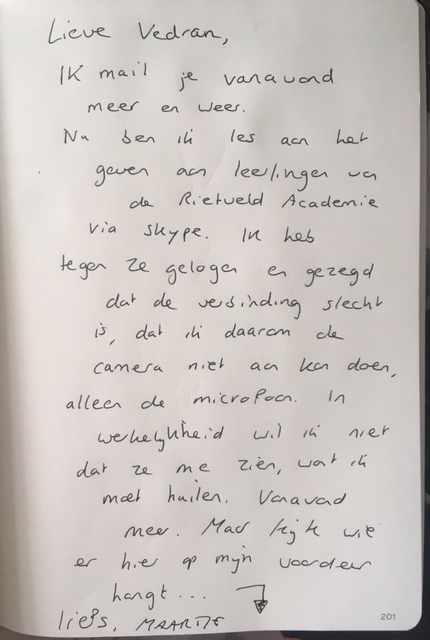 Lieve Vedran,
Ik mail je vanavond
meer en weer.
Nu ben ik les aan het
geven aan leerlingen van
de Rietveld Academie
via skype. Ik heb
tegen ze gelogen en gezegd
dat de verbinding slecht
is, dat ik daarom de
camera niet aan kan doen,
alleen de microfoon. In
werkelijkheid wil ik niet
dat ze me zien, want ik
moet huilen. Vanavond
meer. Maar kijk wie
er hier op mijn voordeur
hangt...
liefs, MAARTJE
201